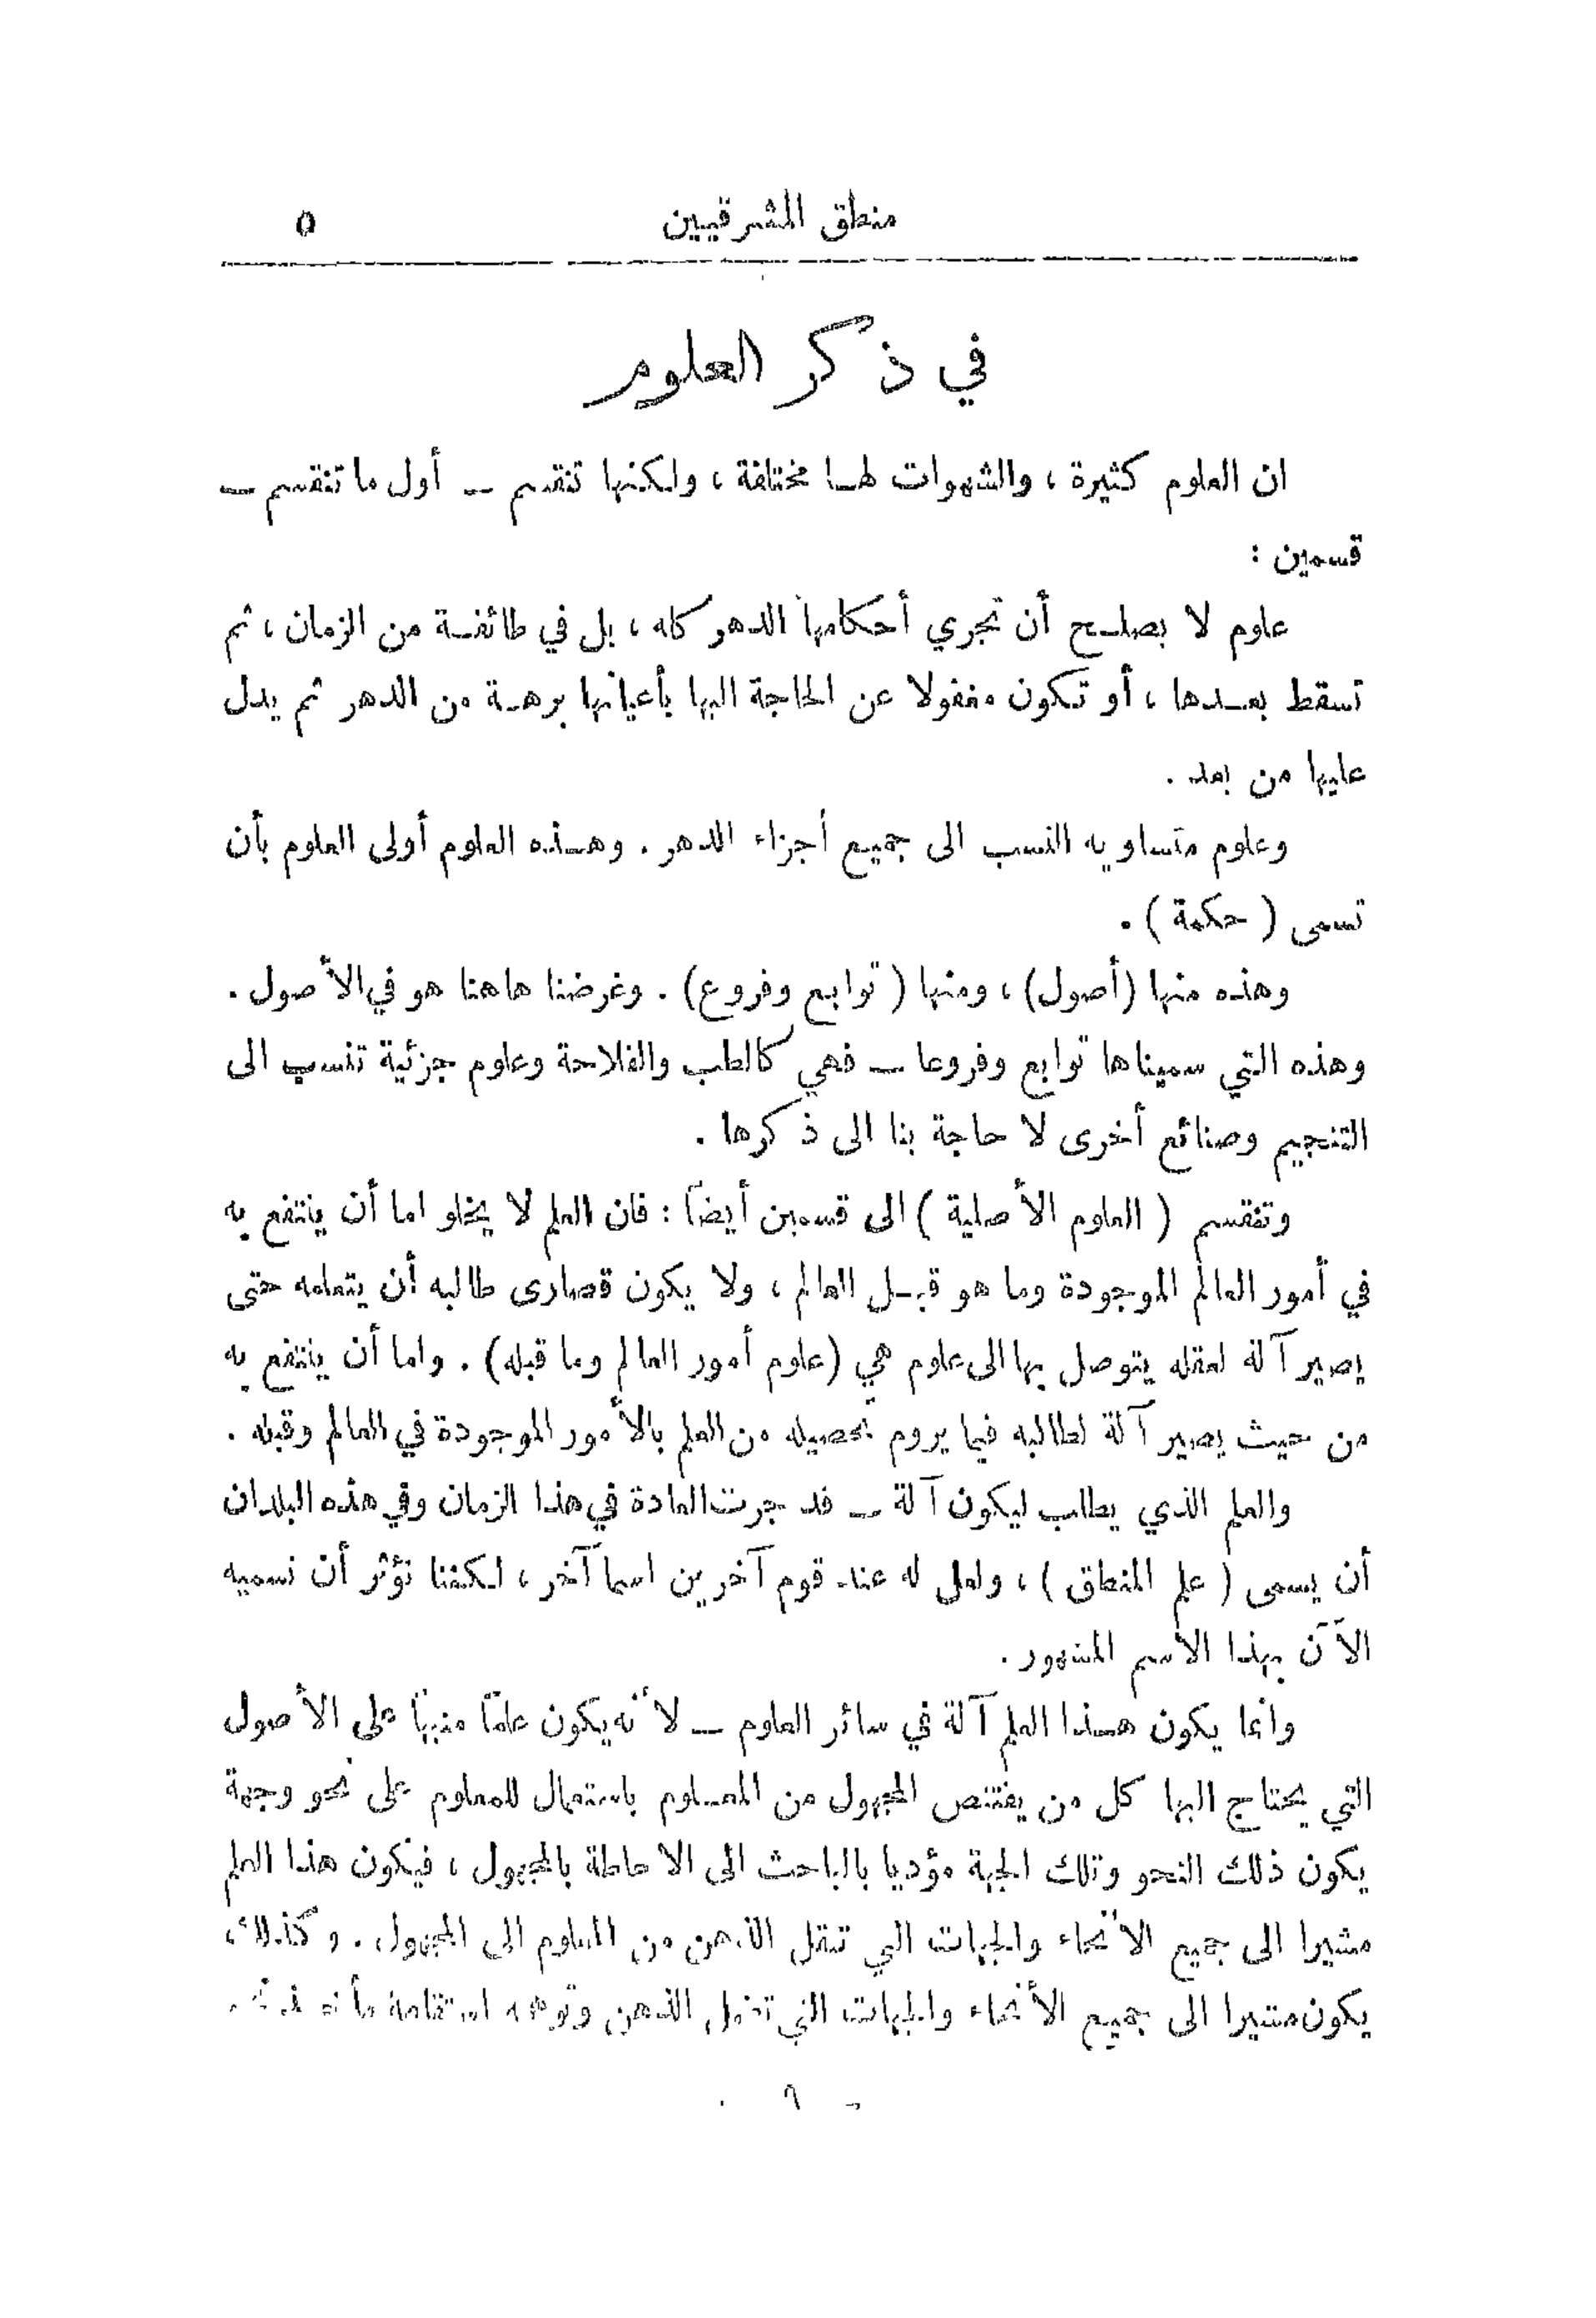 منطق المشرقيين ٥
في ذكر العلوم
ان العلوم كثيرة ، والشهوات لها مختلفة ، ولكنها تنقسم — أول ما تنقسم —
قسمين :
علوم لا يصلح أن تجري أحكامها الدهر كله ، بل في طائفة من الزمان ، ثم
تسقط بعدها ، أو تكون مغفولا عن الحاجة اليها بأعيانها برهة من الدهر ثم يدل
عليها من بعد .
وعلوم متساويه النسب الى جميع أجزاء الدهر . وهذه العلوم أولى العلوم بأن
تسمى ( حكمة ) .
وهذه منها (أصول) ، ومنها ( توابع وفروع) . وغرضنا هاهنا هو في الأصول .
وهذه التي سميناها توابع وفروعا — فهي كالطب والفلاحة وعلوم جزئية تنسب الى
التنجيم وصنائع أخرى لا حاجة بنا الى ذكرها .
وتنقسم ( العلوم الأصلية ) الى قسمين أيضاً : فان العلم لا يخلو اما أن ينتفع به
في أمور العالم الموجودة وما هو قبل العالم ، ولا يكون قصارى طالبه أن يتعلمه حتى
يصير آلة لعقله يتوصل بها الى علوم هي (علوم أمور العالم وما قبله) . واما أن ينتفع به
من حيث يصير آلة لطالبه فيما يروم تحصيله من العلم بالأمور الموجودة في العالم وقبله .
والعلم الذي يطلب ليكون آلة — قد جرت العادة في هذا الزمان وفي هذه البلدان
أن يسمى ( علم المنطق ) ، ولعل له عند قوم آخرين اسما آخر ، لكننا نؤثر أن نسميه
الآن بهذا الاسم المشهور .
وانما يكون هذا العلم آلة في سائر العلوم — لأنه يكون علماً منبهاً على الأصول
التي يحتاج اليها كل من يقتنص المجهول من المعلوم باستعمال للمعلوم على نحو وجهة
يكون ذلك النحو وتلك الجهة مؤديا بالباحث الى الاحاطة بالمجهول ، فيكون هذا العلم
مشيرا الى جميع الأنحاء والجهات التي تنقل الذهن من المعلوم الى المجهول . وكذلك
يكون مشيرا الى جميع الأنحاء والجهات التي تضل الذهن وتوهمه استقامة